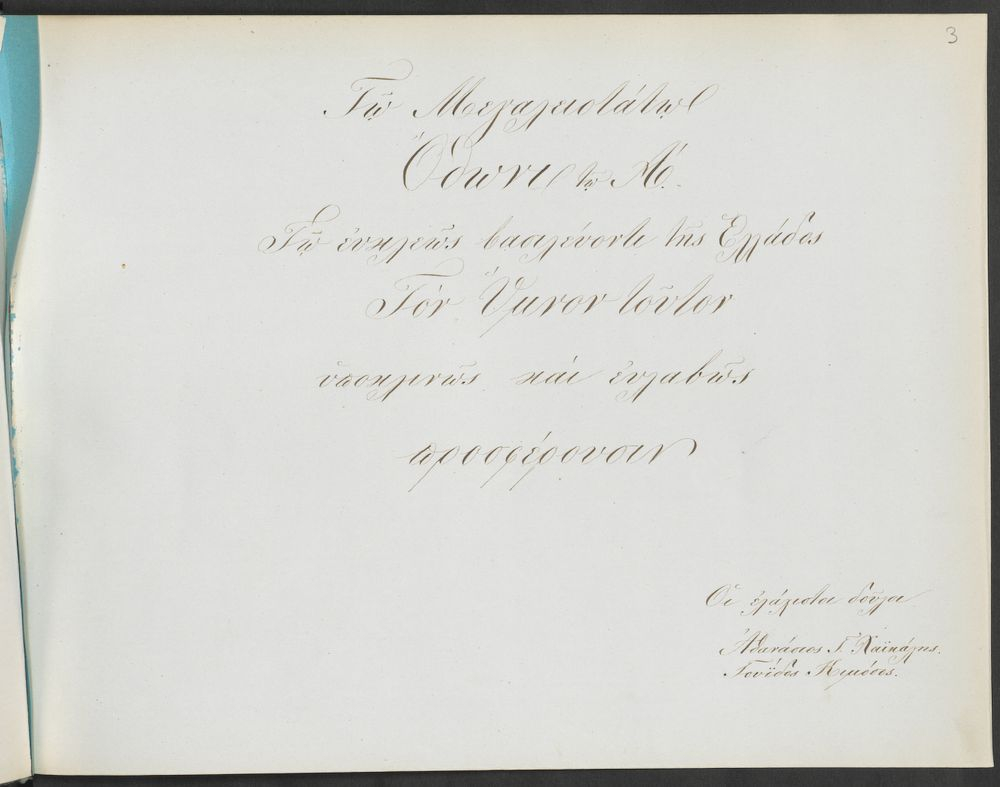 3
Τῷ Μεγαλειοτάτῳ
Ὄθωνι τῷ Α΄.
Τῷ ἐυκλεῶς βασιλέυοντι τῆς Ἑλλάδος
Τόν Ὕμνον τοῦτον
ὑποκλινῶς καί ἐυλαβῶς
προσφέρουσιν
Οἱ ἐλάχιστοι δοῦλοι
Ἀθανάσιος Γ. Χαϊκάλης.